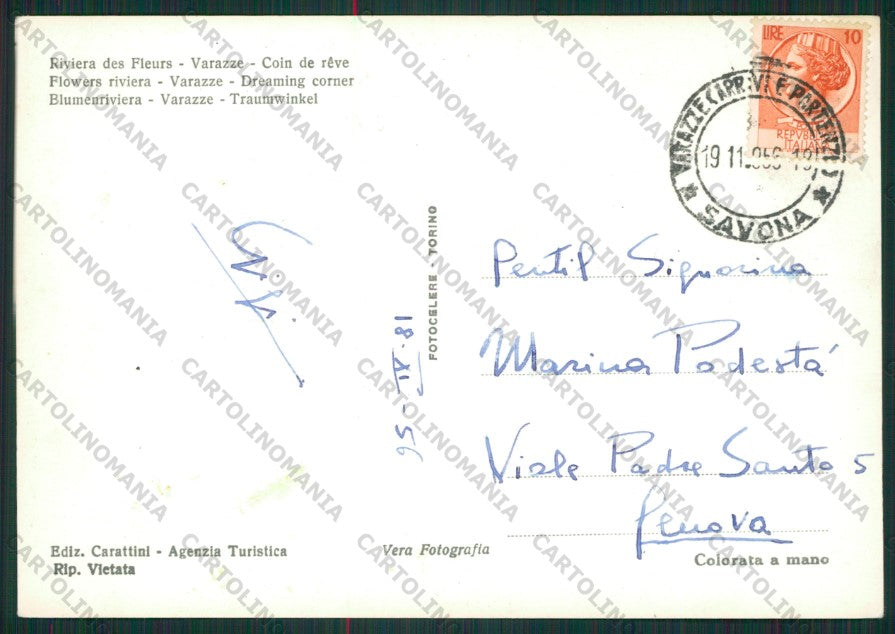 Riviera des Fleurs - Varazze - Coin de rêve
Flowers riviera - Varazze - Dreaming corner
Blumenriviera - Varazze - Traumwinkel
LIRE 10
REPVBBLICA ITALIANA
VARAZZE (ARRIVI E PARTENZE)
19 11.956
SAVONA
FOTOCELERE - TORINO
Gentil Signorina
Marina Podestà
Viale Padre Santo 5
Genova
Ediz. Carattini - Agenzia Turistica
Rip. Vietata
Vera Fotografia
Colorata a mano
CARTOLINOMANIA